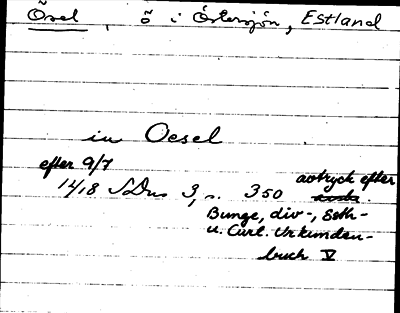 Ösel, ö i Östersjön, Estland
in Oesel
efter 9/7
1418 SDns 3, s. 350 avtryck efter
Bunge, Liv-, Esth-
u. Curl. Urkunden-
buch V